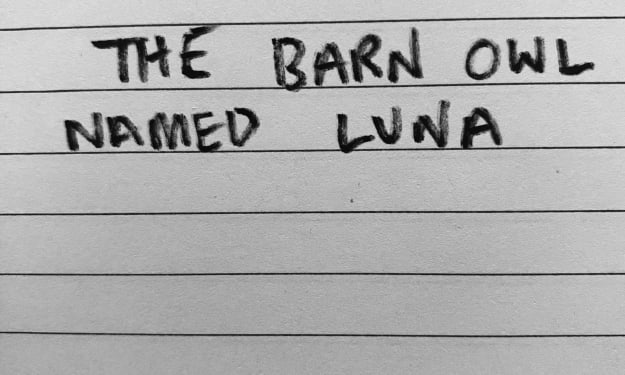 THE BARN OWL
NAMED LUNA